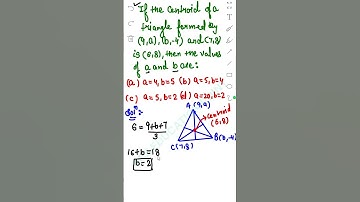 ✓ If the Centroid of a
triangle formed by
(9,a), (b,-4) and (7,8)
is (6,8), then the values
of a and b are:
(a) a=4, b=5 (b) a=5, b=4
(c) a=5, b=2 (d) a=20, b=2
Solⁿ:-
6 = 9+b+7/3
16+b=18
b=2
A (9,a)
Centroid
(6,8)
B(b,-4)
C(7,8)